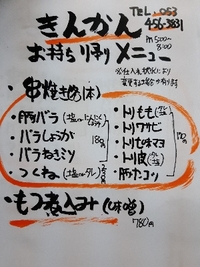 きんかん
TEL. 053
456-3831
お持ち帰りメニュー
PM 5:00~
8:00
※仕入れ状況により
変更する場合が有ります
串焼き各(1本)
・豚バラ
・バラしょうが
・バラねぎミソ
・つくね (塩orタレ)
180円
・トリもも (塩タレ)
・トリワサビ
・トリ皮 (塩タレ)
170円
・もつ煮込み (味噌)
780円